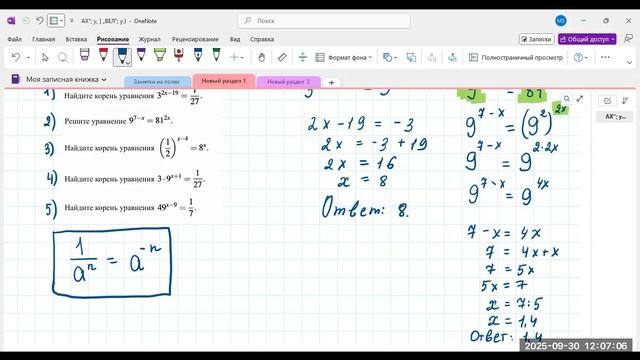 АХ"; y, ] „ВЕЛ"; y.) - OneNote
Поиск
MS
Файл
Главная
Вставка
Рисование
Журнал
Рецензирование
Вид
Справка
Записки
Общий доступ
Фон формата
Полностраничный просмотр
Моя записная книжка
Заметки на полях
Новый раздел 1
Новый раздел 2
АХ"; y...
1) Найдите корень уравнения 3^{2x−19} = 1/27.
2) Решите уравнение 9^{7−x} = 81^{2x}.
3) Найдите корень уравнения (1/2)^{x−4} = 8^x.
4) Найдите корень уравнения 3·9^{x+1} = 1/27.
5) Найдите корень уравнения 49^{x−9} = 1/7.
1/a^n = a^{-n}
2x-19 = -3
2x = -3 + 19
2x = 16
x = 8
Ответ: 8.
9 = 81
9^{7-x} = (9^2)^{2x}
9^{7-x} = 9^{2·2x}
9^{7-x} = 9^{4x}
7-x = 4x
7 = 4x+x
7 = 5x
5x = 7
x = 7:5
x = 1,4
Ответ: 1,4
2025-09-30 12:07:06